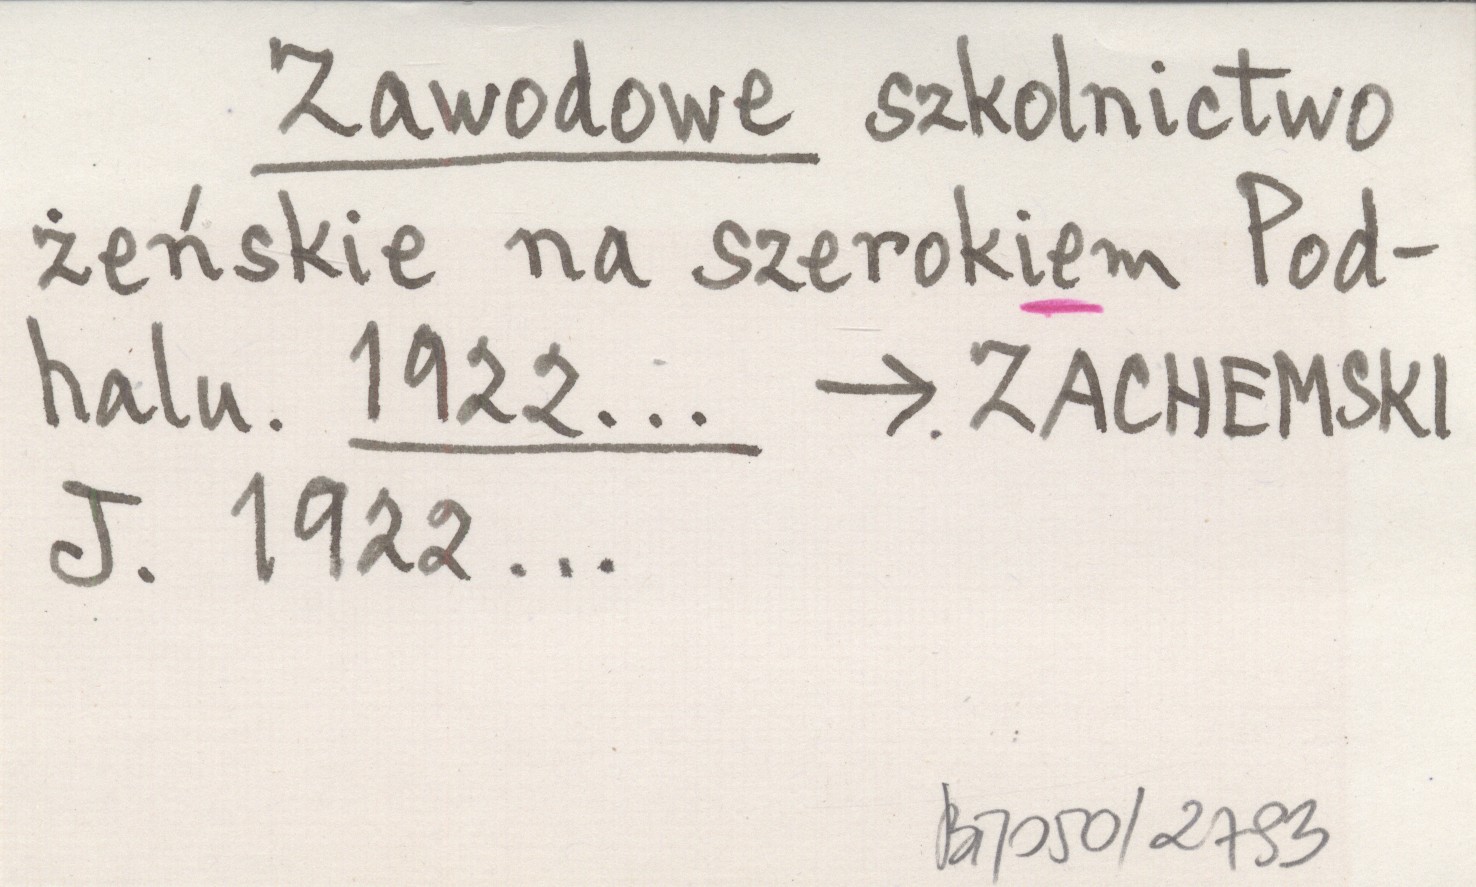 Zawodowe szkolnictwo
żeńskie na szerokiem Pod-
halu. 1922... →. ZACHEMSKI
J. 1922...